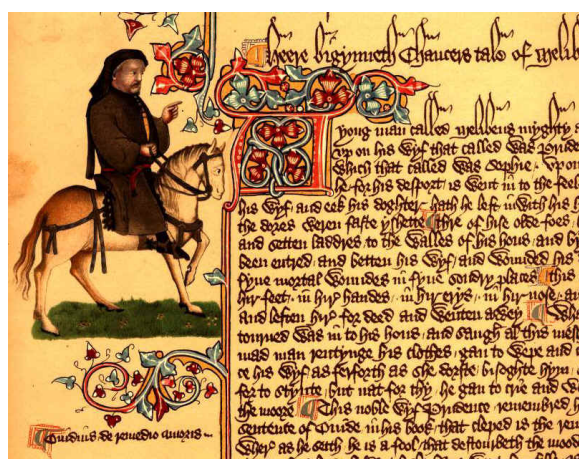 Heere bigynneth Chaucers tale of Melib
A yong man called Melibeus myghty
vp on his wyf that called was Prude
Which that called was Sophie vp on
he for his desport is went in to the feel
his wyf and eek his doghter hath he left inwith his h
the dores weren faste yshette Thre of hise olde foes
and setten laddres to the walles of his hous and by
been entred and betten his wyf and wounded his
fyue mortal woundes in fyue sondry places this
hir feet in hir handes in hir erys in hir nose a
and leften hir for deed and wenten awey Whe
torned was in to his hous and saugh al this mes
mad man rentynge his clothes gan to wepe and
ce his wyf as ferforth as she dorste bisoghte hym
for to stynte but nat for thy he gan to crie and we
the moore This noble wyf Prudence remembred h
sentence of Ouide in his book that cleped is the rem
wher as he seith he is a fool that destourbeth the mood
Ouidius de remedio amoris